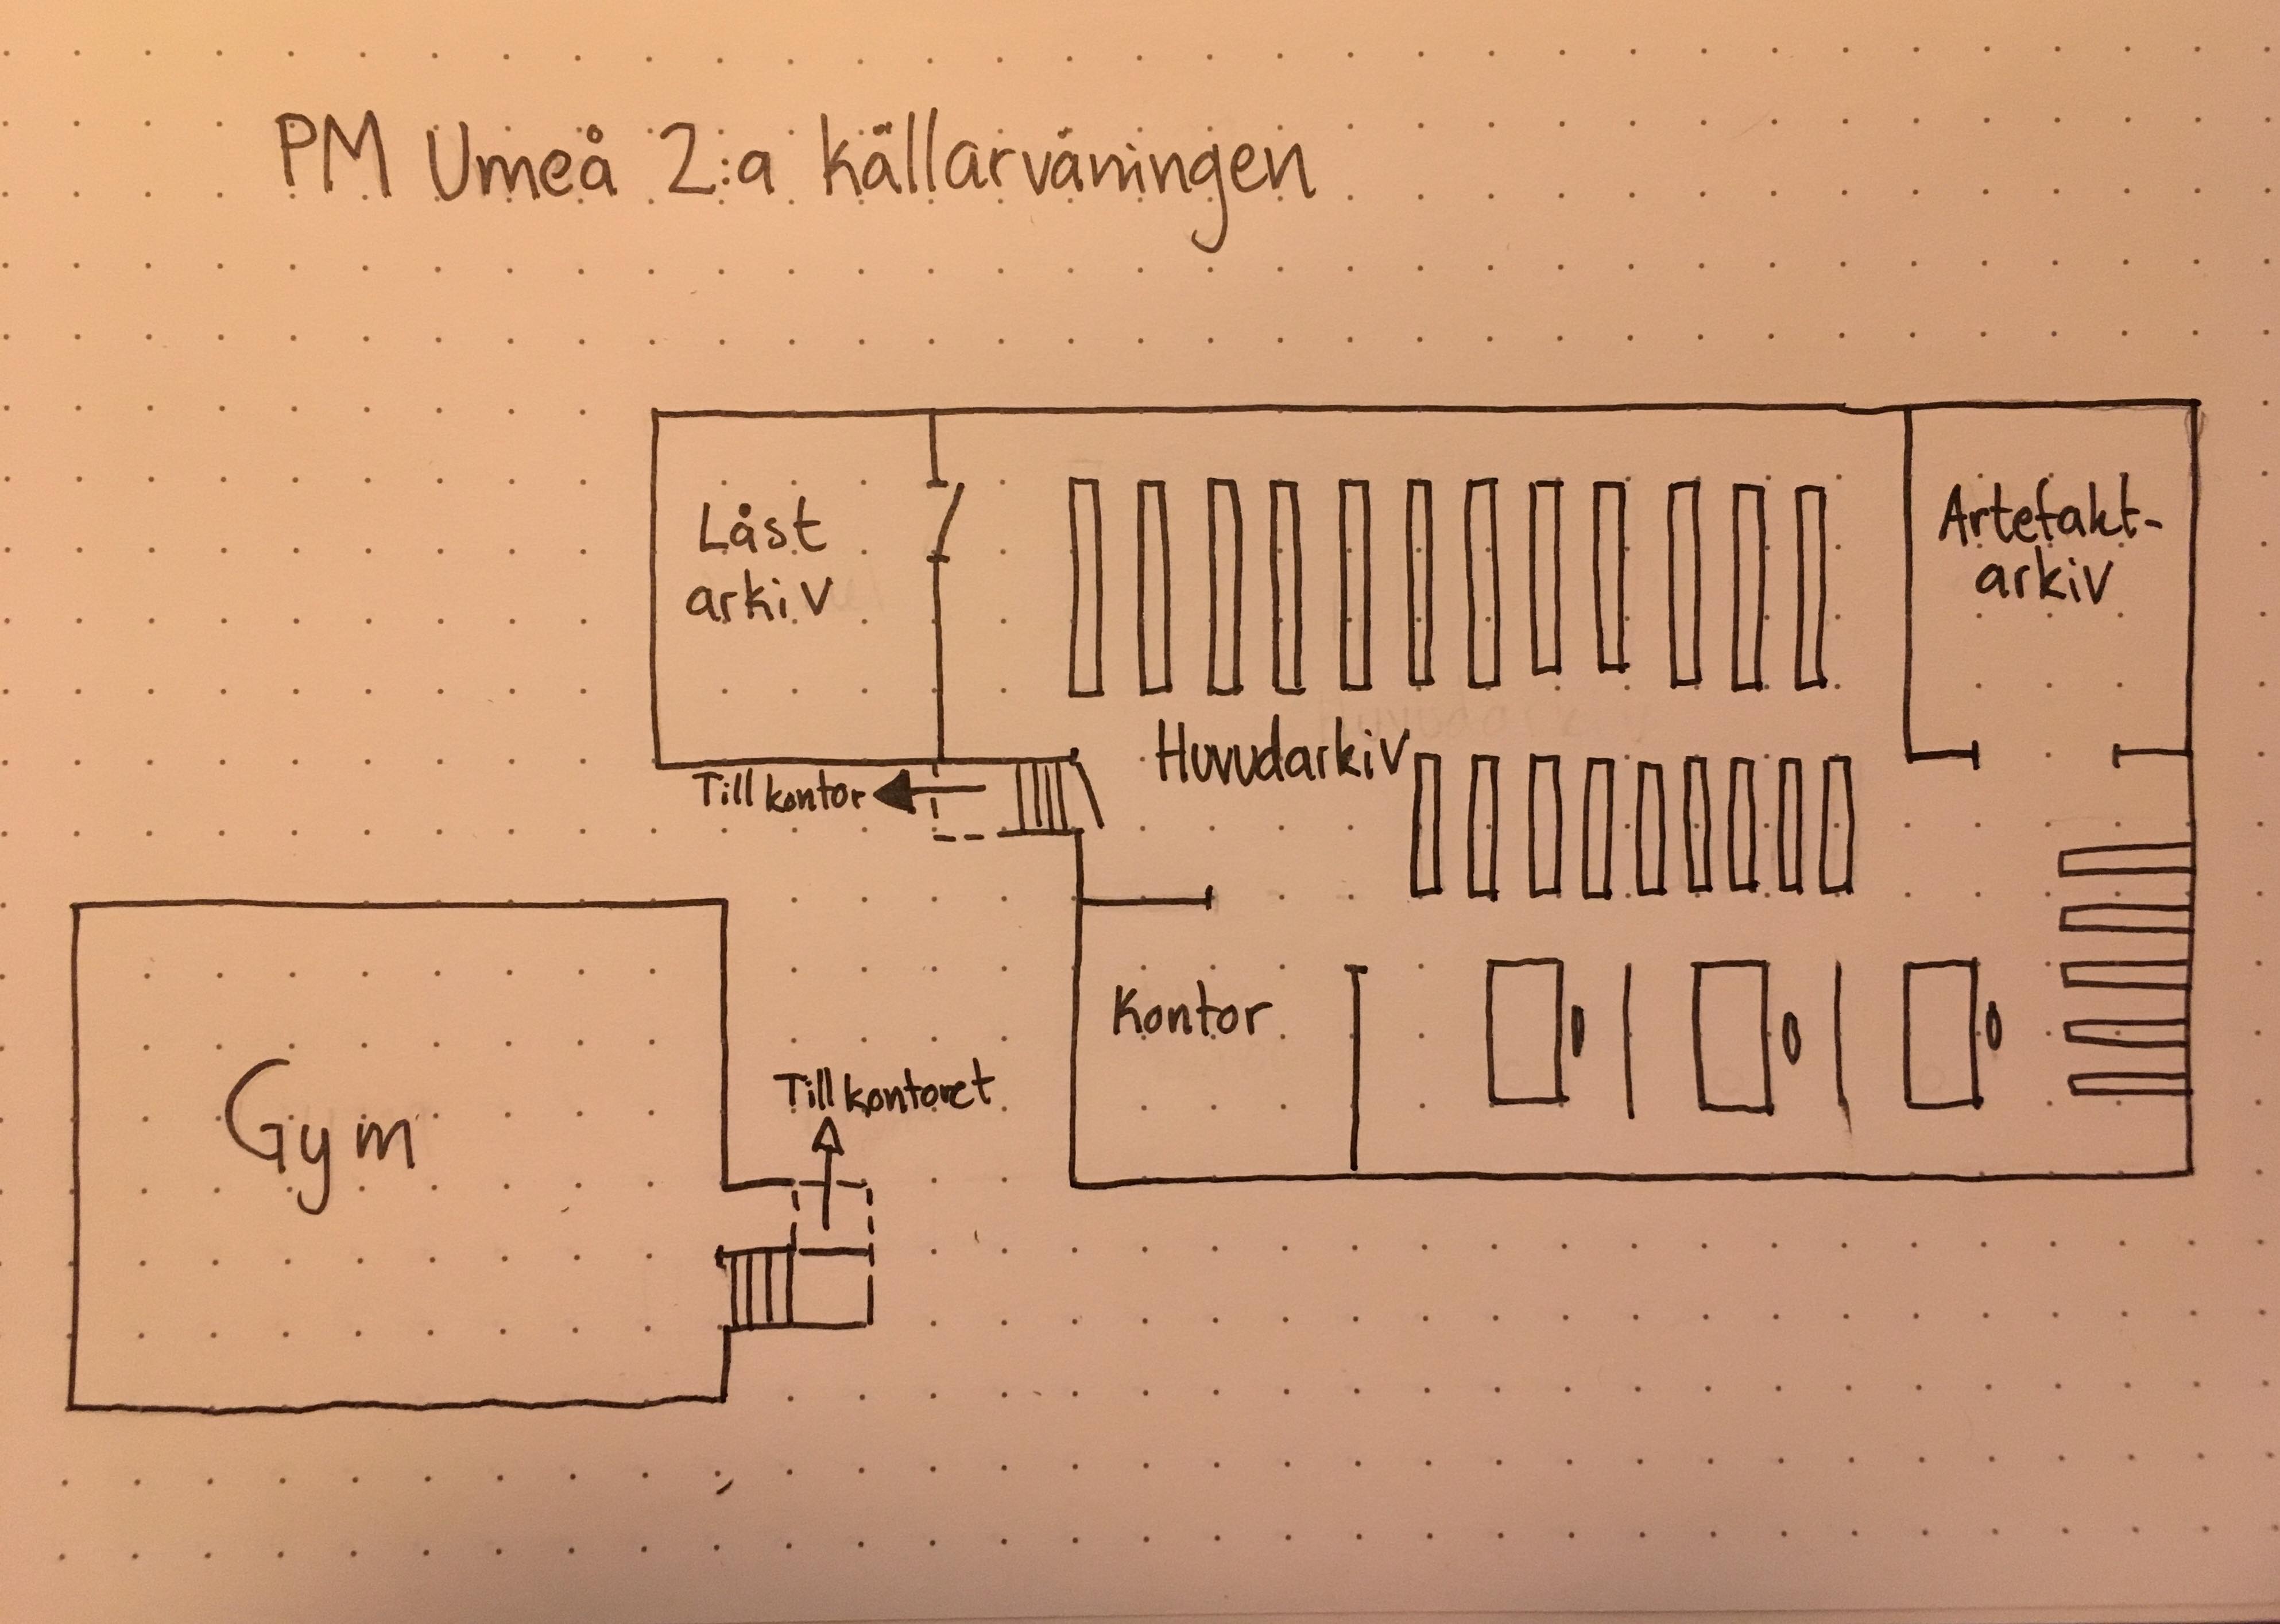 PM Umeå 2:a källarvåningen
Låst
arkiv
Artefakt-
arkiv
Huvudarkiv
Till kontor
Kontor
Till kontoret
Gym